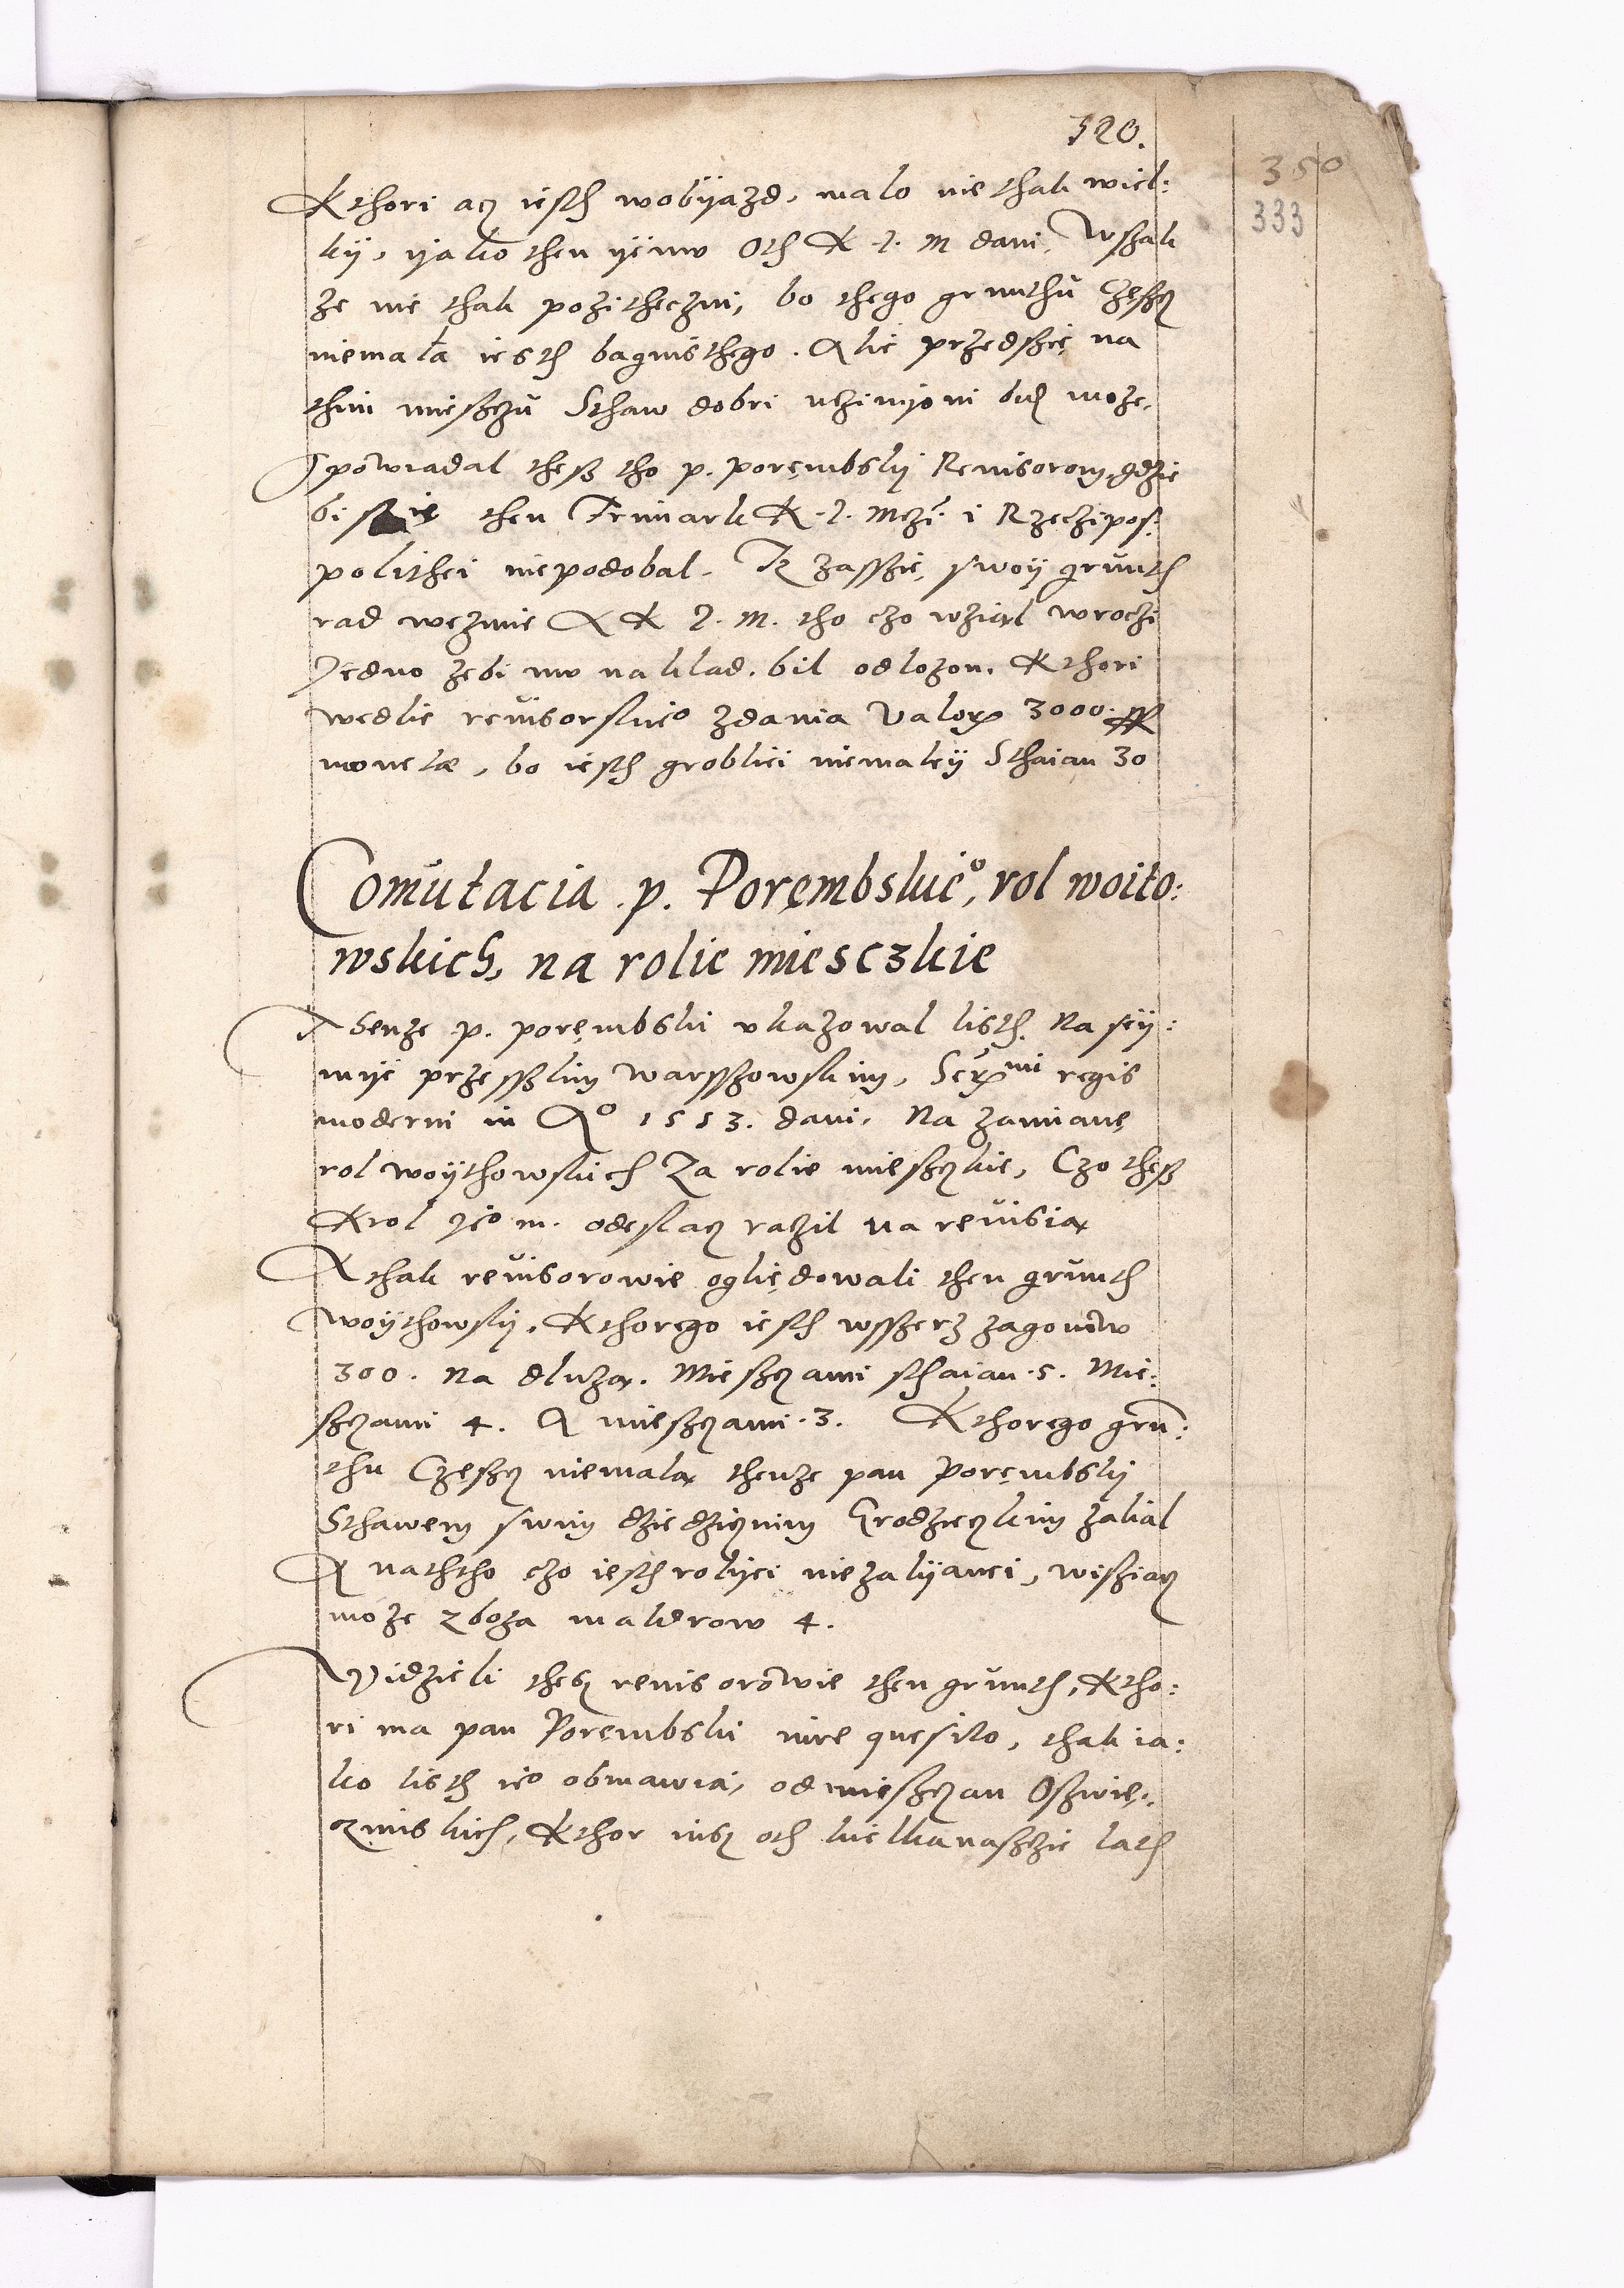 320.
350
333
Kthori acz iesth wobÿazd, malo nie thak wiel:
kÿ, ÿako then ÿemu Oth K J. M dani, Wszak
ze nie thak pozitheczni, bo thego grunthu Częscz
niemała iesth bagnisthego. Alie przedszię na
thim mieszczu Sthaw dobri uczinÿoni bidz moze,
Powiadal thesz tho p. poręmbskÿ Revisorom, gdzie
bi szie then Frimark K. J. Mczi. i Rzeczipos:
polithei niepodobal. Iz zasszię, swoÿ grunth
rad wezmie A K J. M. tho czo wział wroczi
Jedno zebi mu naklad. bil odlozon. Kthori
wedlie revisorskie⁰ zdania valor 3000.
monetæ, bo iesth groblÿei niemalÿ Sthaian 30
Comutacia .p. Poręmbskie⁰, rol woito:
wskich, na rolie miesczkie
Tenze p. porębski ukazowal listh. Na seÿ:
mÿe przesszlim warsszowskim, Ser^mi regis
moderni in A⁰ 1553. dani. Na zamianę
rol woÿthowskich Za rolie mieszczkie, Czo thesz
Krol Je⁰ m. odeslacz raczil na revisią
A thak revisorowie oglię̨dowali then grunth
woÿthowskÿ. Kthorego iesth wsszerz zagonow
300. Na dluzą. Mieszczami sthaian .5. Mie:
szczami 4. A mieszczami .3. Kthorego grū:
thu Częscz niemalą thenze pan Porębskÿ
Sthawem swim dziedzicznim Grodzieczkim zalial
A naththo czo iesth rolÿei niezalÿanei, wisziacz
moze zboza maldrow 4.
Widzieli thesz revisorowie then grunth, Ktho:
ri ma pan Porembski iure quesito, thak ia:
ko listh ie⁰ obmawia, od mieszczan Oszwię:
czimskich, Kthor iusz oth kielkanaszczie lath